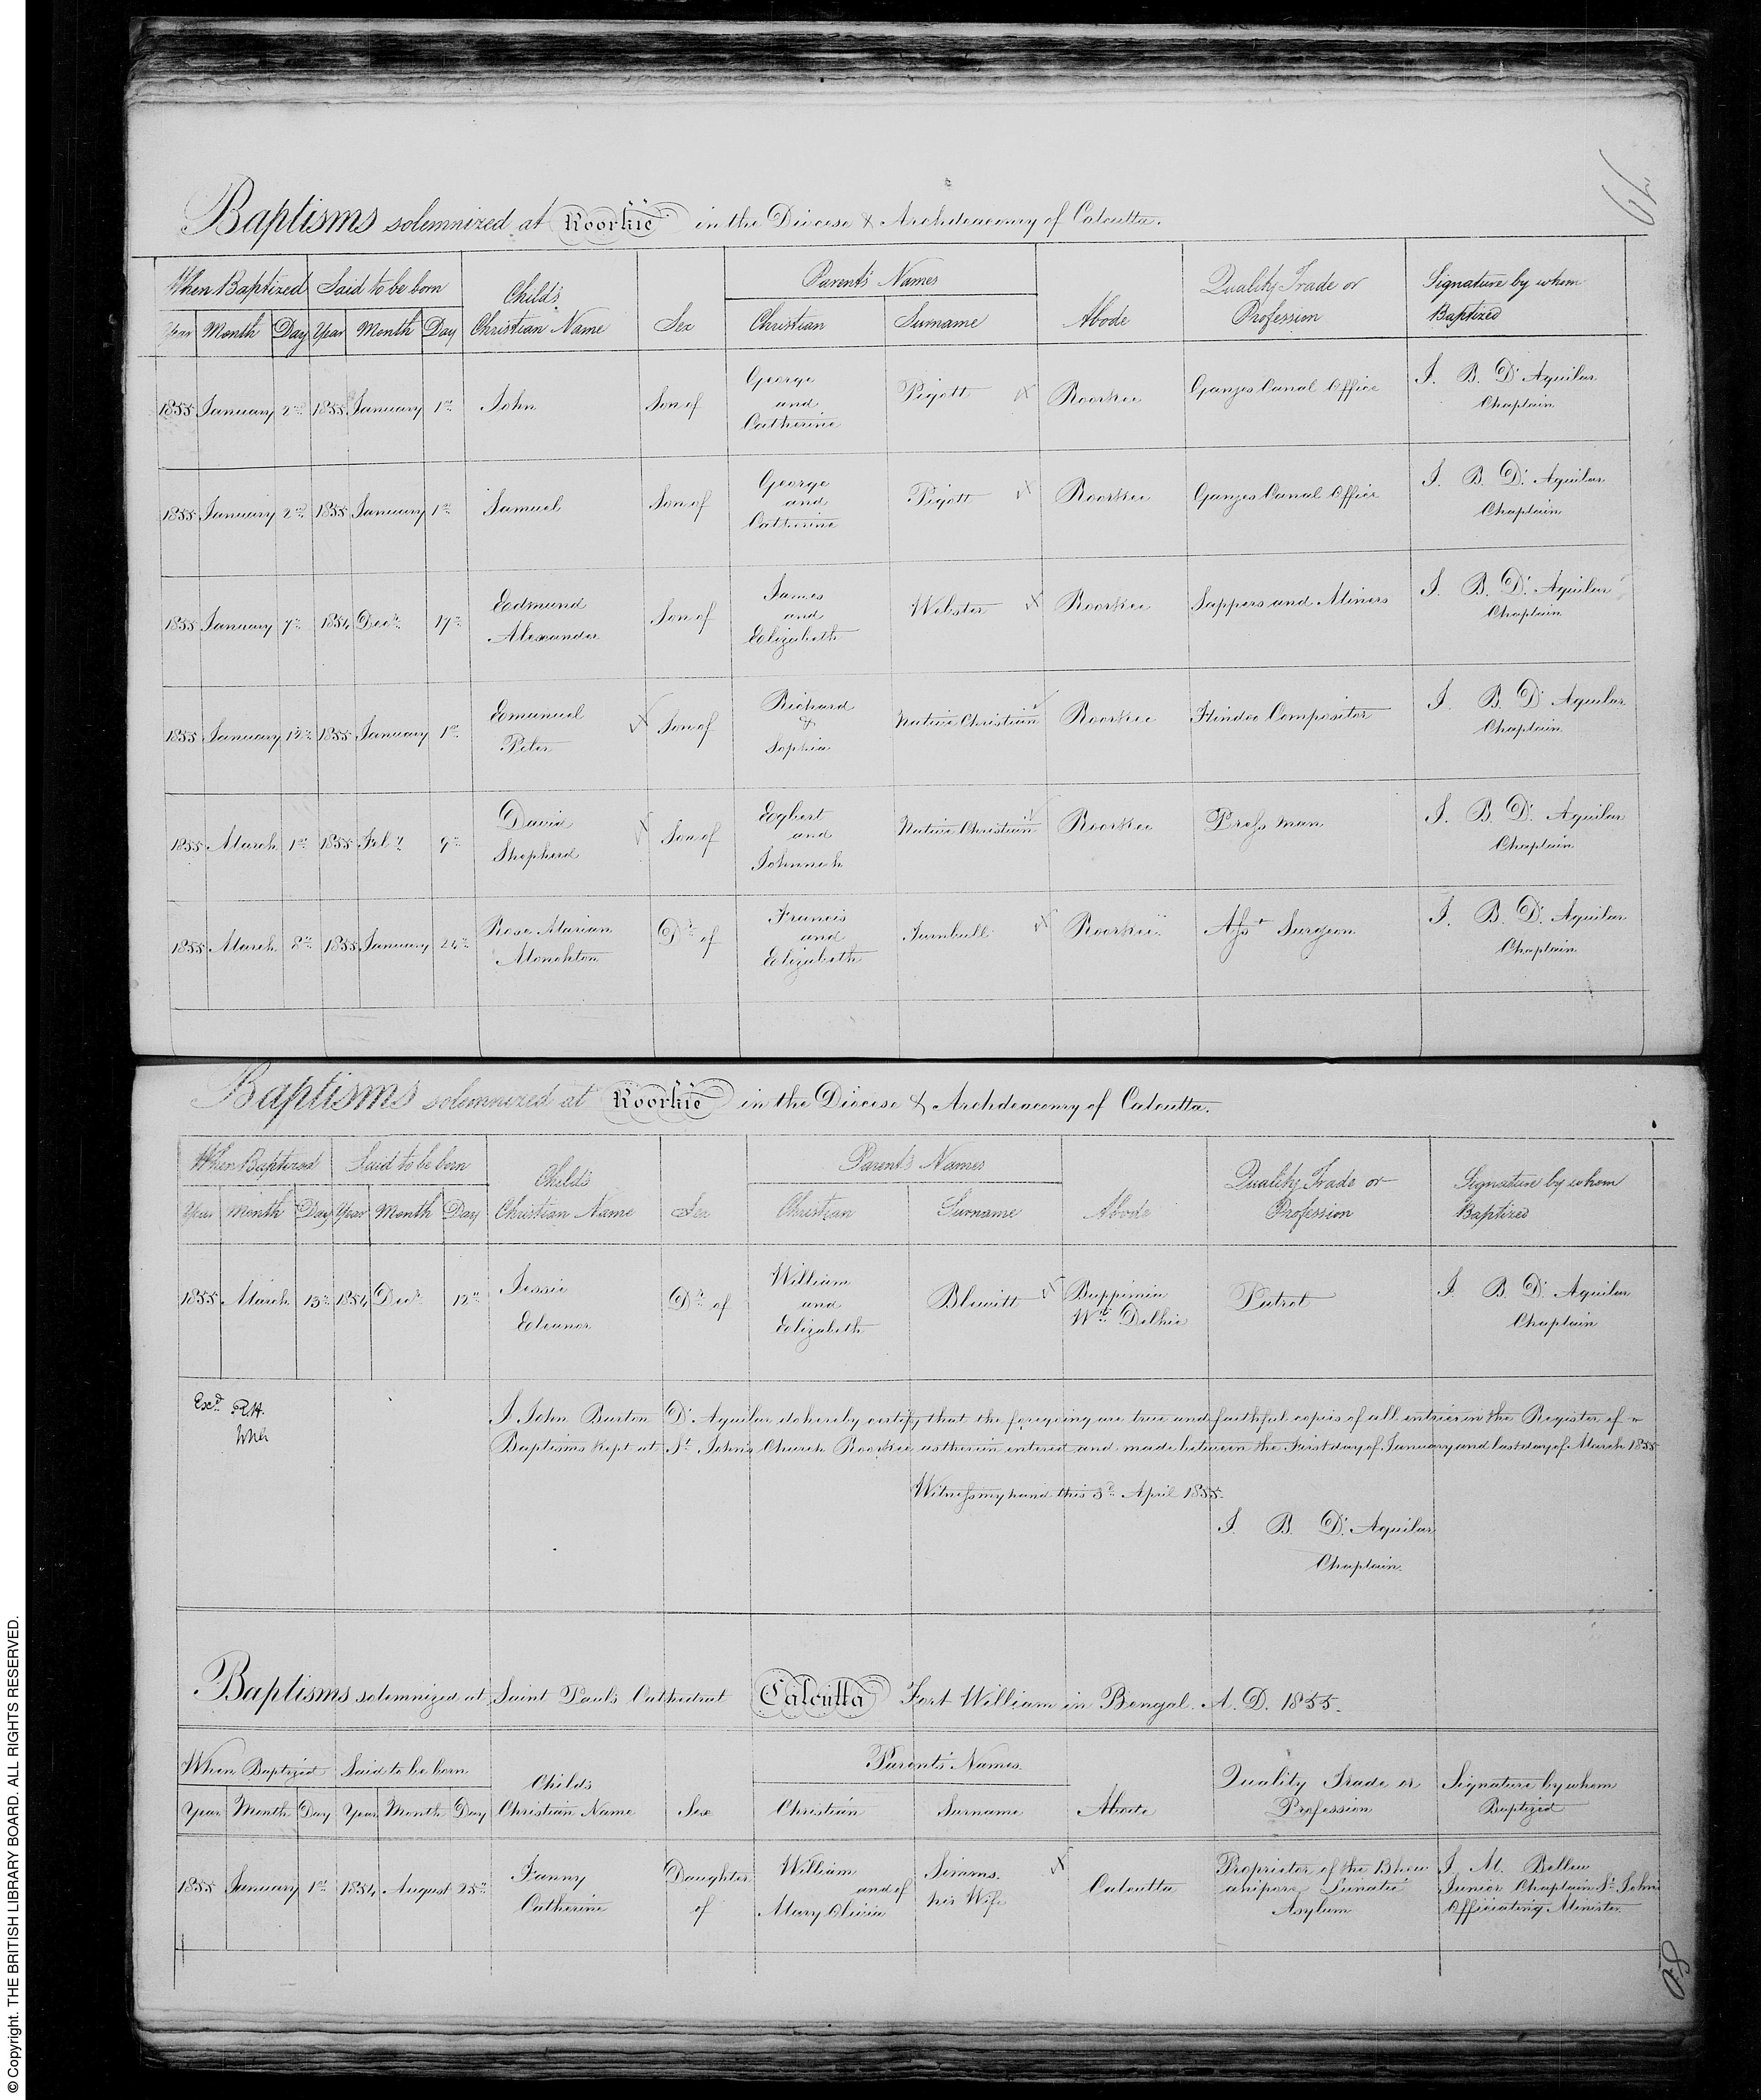 79
Baptisms solemnized at Roorkie in the Diocese & Archdeaconry of Calcutta.
When Baptized Said to be born Child's Christian Name Sex Parent's Names Abode Quality Trade or Profession Signature by whom Baptized
Year Month Day Year Month Day Christian Surname
1855 January 2nd 1855 January 1st John Son of George and Catherine Pigott Roorkee Ganges Canal Office J. B. D'Aguilar Chaplain
1855 January 2nd 1855 January 1st Samuel Son of George and Catherine Pigott Roorkee Ganges Canal Office J. B. D'Aguilar Chaplain
1855 January 7th 1854 Decr 17th Edmund Alexander Son of James and Elizabeth Webster Roorkee Sappers and Miners J. B. D'Aguilar Chaplain
1855 January 12th 1855 January 1st Emanuel Peter Son of Richard & Sophia Native Christian Roorkee Hindoo Compositor J. B. D'Aguilar Chaplain
1855 March 1st 1855 Feby 9th David Shepherd Son of Egbert and Native Christian Roorkee Press man J. B. D'Aguilar Chaplain
1855 March 8th 1855 January 24th Rose Marian Monckton Dr of Francis and Elizabeth Turnbull Roorkee Asst Surgeon J. B. D'Aguilar Chaplain
Baptisms solemnized at Roorkie in the Diocese & Archdeaconry of Calcutta.
When Baptized Said to be born Child's Christian Name Sex Parent's Names Abode Quality Trade or Profession Signature by whom Baptized
Year Month Day Year Month Day Christian Surname
1855 March 13th 1854 Decr 12th Jessie Eleanor Dr of William and Elizabeth Blewitt Delhie Patrol J. B. D'Aguilar Chaplain
Exd R.H.
I John Burton D'Aguilar do hereby certify that the foregoing are true and faithful copies of all entries in the Register of
Baptisms kept at St John's Church Roorkee as therein entered and made between the First day of January and last day of March 1855
Witness my hand this 3d April 1855.
J. B. D'Aguilar
Chaplain.
Baptisms solemnized at Saint Pauls Cathedral Calcutta Fort William in Bengal. A. D. 1855.
When Baptized Said to be born Childs Christian Name Sex Parents Names Abode Quality Trade or Profession Signature by whom Baptized
Year Month Day Year Month Day Christian Surname
1855 January 1st 1854 August 25th Fanny Catherine Daughter of William and of Mary Olivia Simms his Wife Calcutta Proprietor of the Bhowanipore Lunatic Asylum J. M. Bellew Junior Chaplain St Johns Officiating Minister
80
© Copyright. THE BRITISH LIBRARY BOARD. ALL RIGHTS RESERVED.